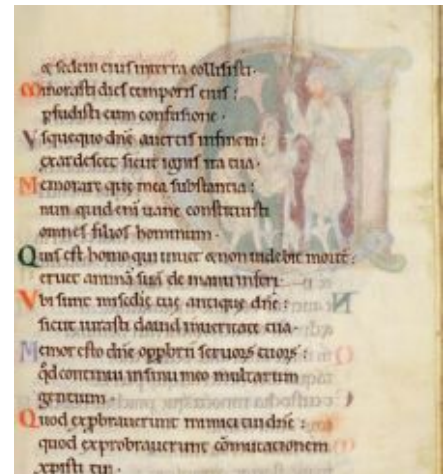 & sedem eius in terra collisisti.
Minorasti dies temporis eius:
pfudisti eum confusione.
Vsquequo dñe auertis in finem:
exardescet sicut ignis ira tua.
Memorare que mea substantia:
nun quid eni uane constituisti
omnes filios hominum.
Quis est homo qui uiuet & non uidebit morte:
eruet animā suā de manu inferi.
Vbi sunt misedie tue antique dñe:
sicut iurasti dauid in ueritate tua.
Memor esto dñe opprobrii seruoꝝ tuoꝝ:
qd continui in sinu meo multarum
gentium.
Quod exprobrauerunt inimici tui dñe:
quod exprobrauerunt cōmutationem
xpisti tui.